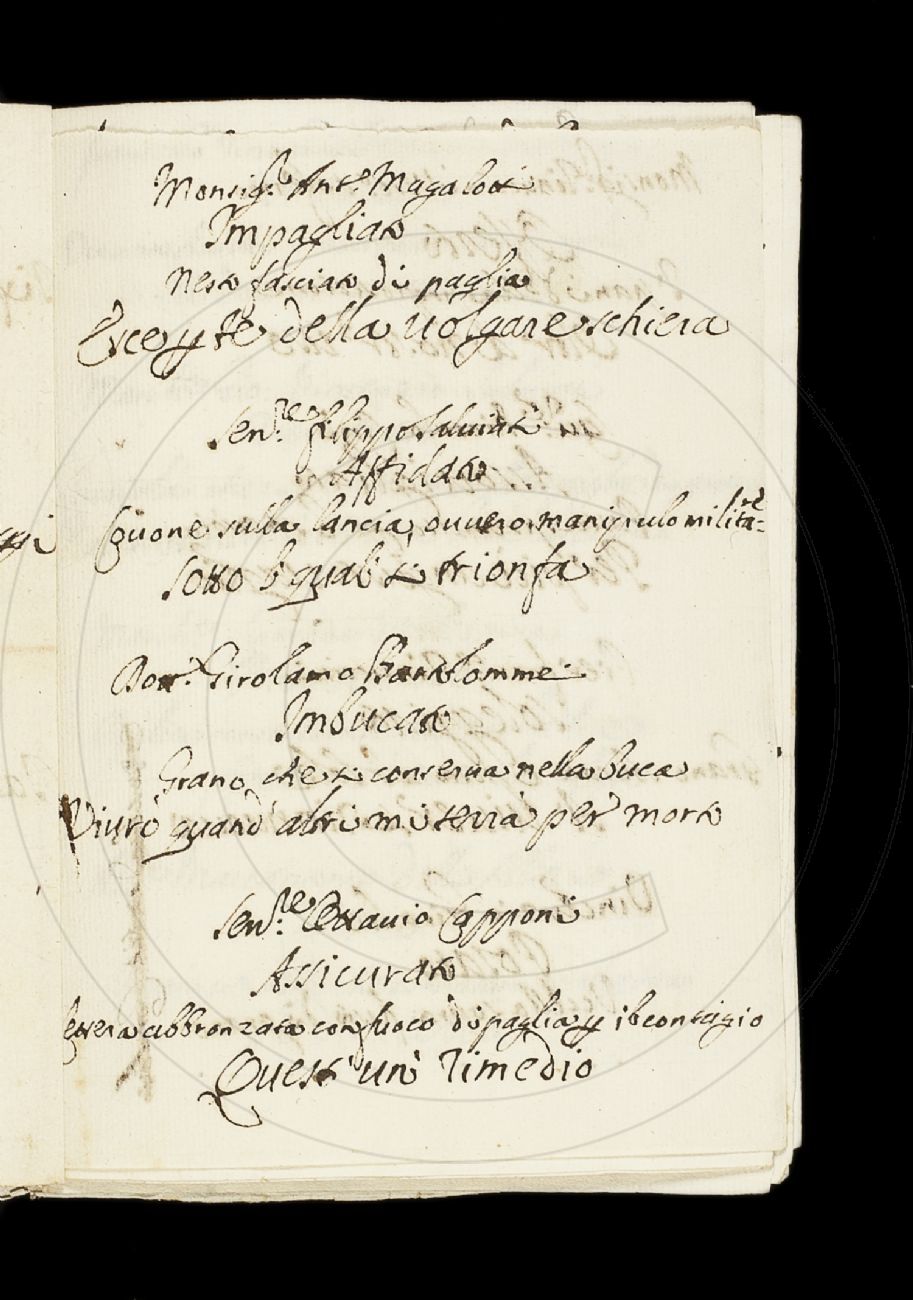 Monsig.re Ant.o Magalotti
Impagliato
Nesto fasciato di paglia
Esce p te della volgare schiera
Sen.re Filippo Salviati
Affidato
Covone sulla lancia, ovvero manipulo militare
Sotto 'l qual si trionfa
Dott.r Girolamo Bartolommei
Imbucato
Grano, che si conserva nella buca
Vivrò quand' altri mi terrà per morto
Sen.re Ottavio Capponi
Assicurato
lettera abbronzata con fuoco di paglia p il contagio
Quest' un' rimedio